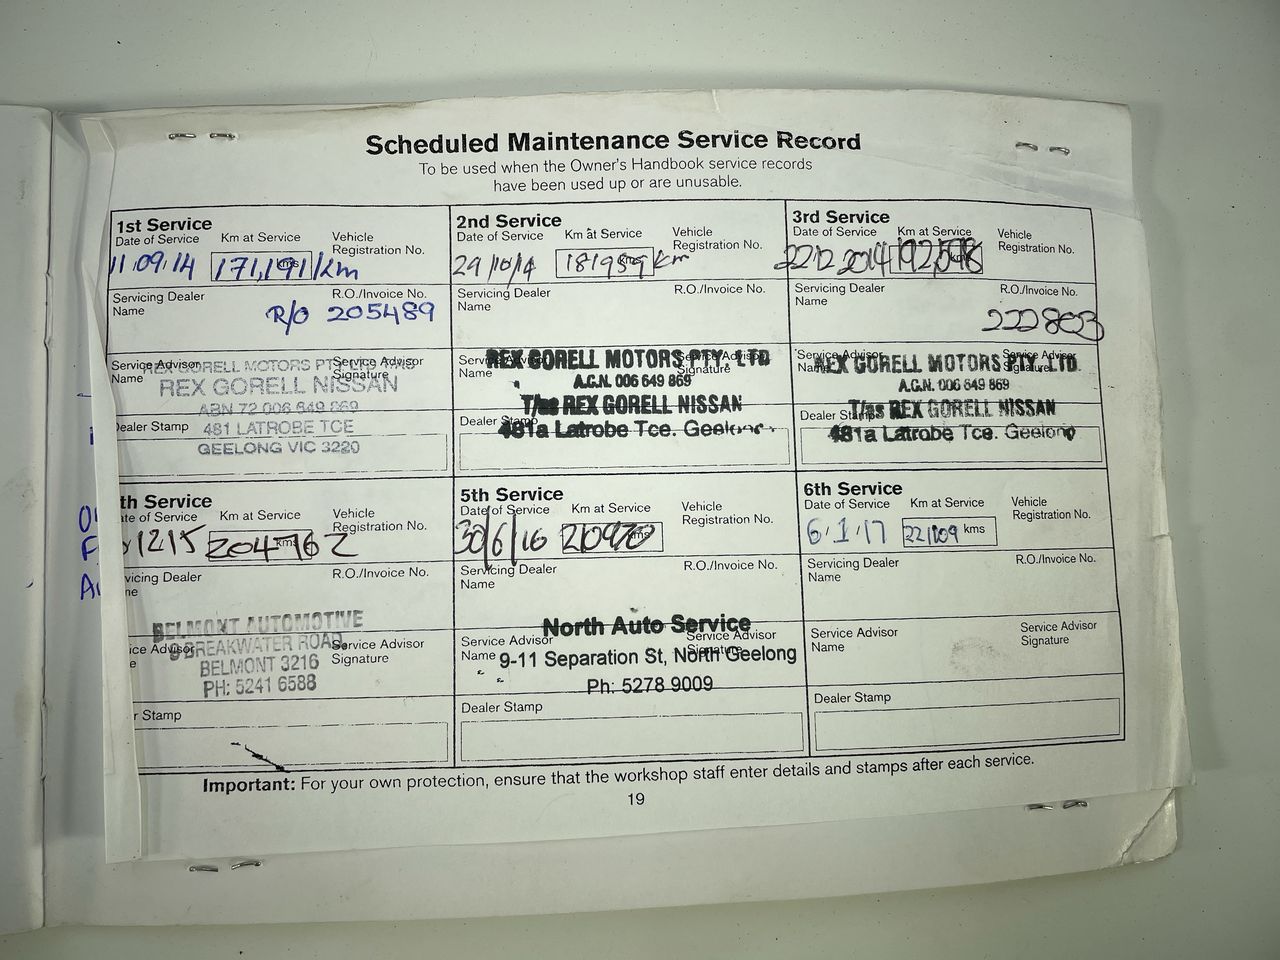 Scheduled Maintenance Service Record
To be used when the Owner's Handbook service records
have been used up or are unusable.
1st Service
Date of Service Km at Service Vehicle
Registration No.
11.09.14 171,191 kms Km
Servicing Dealer R.O./Invoice No.
Name
R/O 205489
Service Advisor Service Advisor
Name Signature
REX GORELL MOTORS PTY LTD T/AS
REX GORELL NISSAN
ABN 72 006 649 869
Dealer Stamp
481 LATROBE TCE
GEELONG VIC 3220
2nd Service
Date of Service Km at Service Vehicle
Registration No.
29/10/14 181959 kms Km
Servicing Dealer R.O./Invoice No.
Name
Service Advisor Service Advisor
Name Signature
REX GORELL MOTORS PTY. LTD
A.C.N. 006 649 869
T/as REX GORELL NISSAN
Dealer Stamp
481a Latrobe Tce. Geelong.
3rd Service
Date of Service Km at Service Vehicle
Registration No.
22122014 kms
Servicing Dealer R.O./Invoice No.
Name
222803
Service Advisor Service Advisor
Name Signature
REX GORELL MOTORS PTY. LTD.
A.C.N. 006 649 869
T/as REX GORELL NISSAN
Dealer Stamp
481a Latrobe Tce. Geelong
th Service
te of Service Km at Service Vehicle
Registration No.
1215 204762 kms
vicing Dealer R.O./Invoice No.
ne
BELMONT AUTOMOTIVE
BREAKWATER ROAD
ice Advisor Service Advisor
e Signature
BELMONT 3216
PH: 5241 6588
r Stamp
5th Service
Date of Service Km at Service Vehicle
Registration No.
30/6/16 kms
Servicing Dealer R.O./Invoice No.
Name
North Auto Service
Service Advisor Service Advisor
Name Signature
9-11 Separation St, North Geelong
Ph: 5278 9009
Dealer Stamp
6th Service
Date of Service Km at Service Vehicle
Registration No.
6.1.17 221109 kms
Servicing Dealer R.O./Invoice No.
Name
Service Advisor Service Advisor
Name Signature
Dealer Stamp
Important: For your own protection, ensure that the workshop staff enter details and stamps after each service.
19